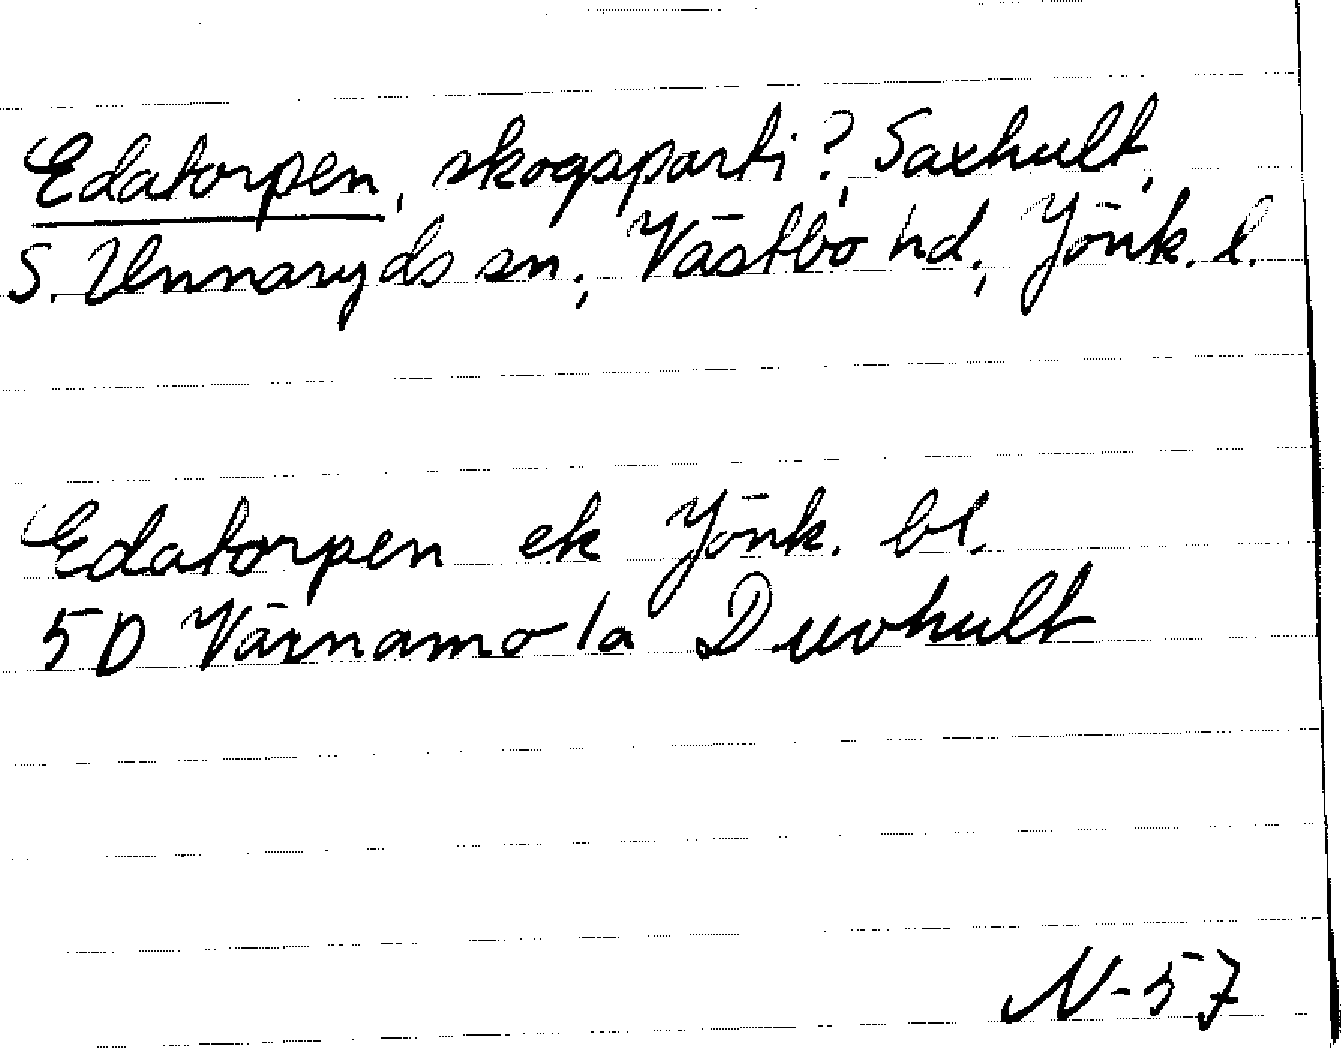 Edatorpen, skogsparti?, Saxhult,
S. Unnaryds sn., Västbo hd., Jönk. l.
Edatorpen ek Jönk. bl.
5D Värnamo 1a Duvhult
N-57